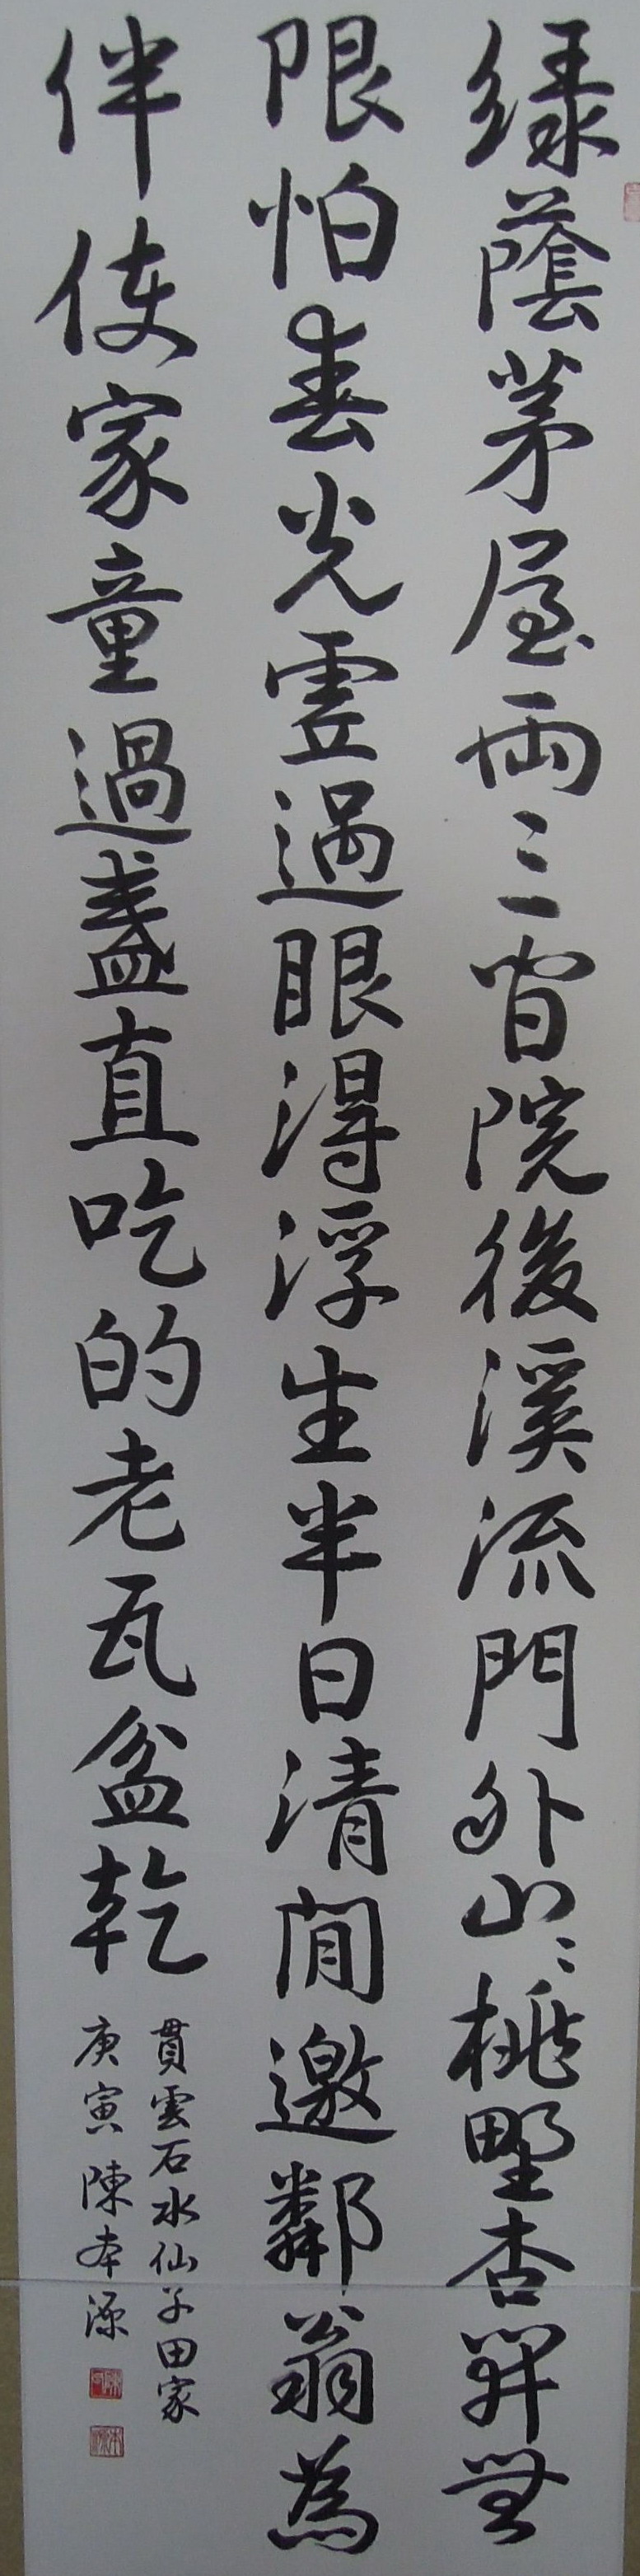 綠蔭茅屋兩三間院後溪流門外山〻桃野杏開無
限怕春光虛過眼得浮生半日清閒邀鄰翁為
伴使家童過盞直吃的老瓦盆乾
貫雲石水仙子田家
庚寅陳本源